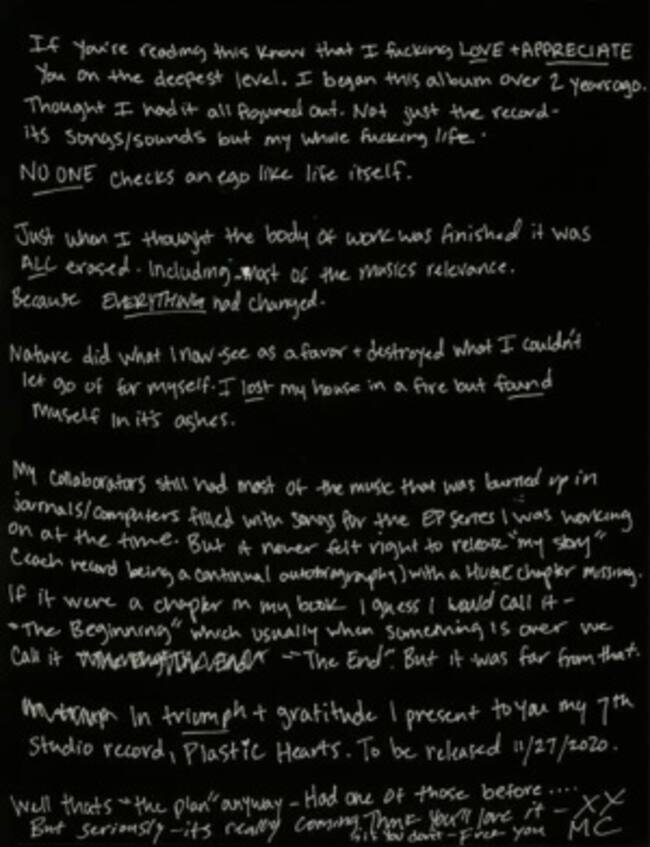 If you're reading this know that I fucking LOVE + APPRECIATE
you on the deepest level. I began this album over 2 years ago.
Thought I had it all figured out. Not just the record-
its songs/sounds but my whole fucking life.
NO ONE checks an ego like life itself.
Just when I thought the body of work was finished it was
ALL erased. Including most of the musics relevance.
Because EVERYTHING had changed.
Nature did what I now see as a favor + destroyed what I couldn't
let go of for myself. I lost my house in a fire but found
myself in it's ashes.
My collaborators still had most of the music that was burned up in
journals/computers filled with songs for the EP series I was working
on at the time. But it never felt right to release "my story"
(each record being a continual autobiography) with a HUGE chapter missing.
If it were a chapter in my book I guess I would call it -
"The Beginning" which usually when something is over we
call it "The End". But it was far from that.
In triumph + gratitude I present to you my 7th
studio record, Plastic Hearts. To be released 11/27/2020.
Well thats "the plan" anyway - Had one of those before ....
But seriously - its really coming. Think you'll love it - XX
if you don't - Fuck you MC